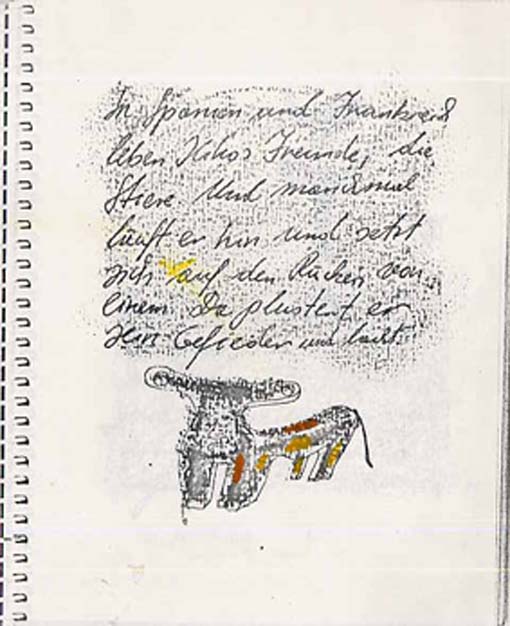 In Spanien und Frankreich
leben Kikos Freunde, die
Stiere. Und manchmal
läuft er hin und setzt
sich auf den Rücken von
einem. Da plustert er
sein Gefieder und lacht.